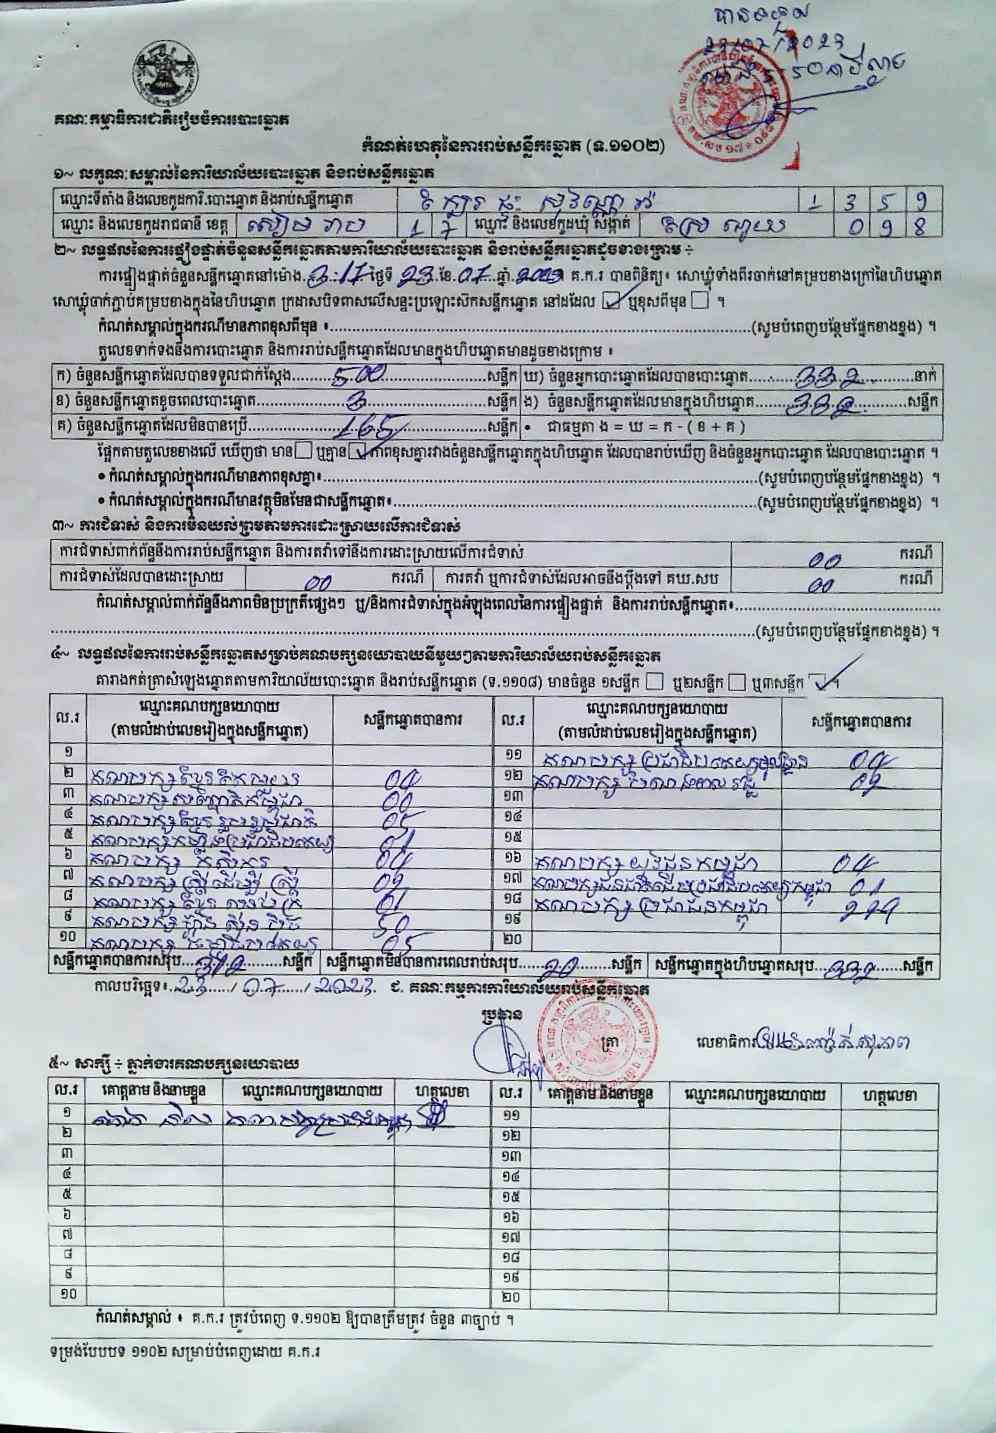 បានទទួល
គណៈកម្មាធិការជាតិរៀបចំការបោះឆ្នោត
កំណត់ហេតុនៃការរាប់សន្លឹកឆ្នោត (ទ.១១០២)
១~ លក្ខណៈសម្គាល់នៃការិយាល័យបោះឆ្នោត និងរាប់សន្លឹកឆ្នោត
ឈ្មោះទីតាំង និងលេខកូដការិ.បោះឆ្នោត និងរាប់សន្លឹកឆ្នោត 1 3 5 9
ឈ្មោះ និងលេខកូដរាជធានី ខេត្ត សៀមរាប 1 7 ឈ្មោះ និងលេខកូដឃុំ សង្កាត់ 0 9 8
២~ លទ្ធផលនៃការផ្ទៀងផ្ទាត់ចំនួនសន្លឹកឆ្នោតតាមការិយាល័យបោះឆ្នោត និងរាប់សន្លឹកឆ្នោតដូចខាងក្រោម ÷
ការផ្ទៀងផ្ទាត់ចំនួនសន្លឹកឆ្នោតនៅម៉ោង.3:17.ថ្ងៃទី.23.ខែ.07.ឆ្នាំ.2023 គ.ក.រ បានពិនិត្យ៖ សោឃ្លុំទាំងពីរចាក់នៅគម្របខាងក្រៅនៃហិបឆ្នោត
សោឃ្លុំចាក់ភ្ជាប់គម្របខាងក្នុងនៃហិបឆ្នោត ក្រដាសបិទពាសលើសន្ទះប្រឡោះសឹកសន្លឹកឆ្នោត នៅដដែល ☑ ឬខុសពីមុន ☐ ។
កំណត់សម្គាល់ក្នុងករណីមានភាពខុសពីមុន ៖..........(សូមបំពេញបន្ថែមផ្នែកខាងខ្នង) ។
តួលេខទាក់ទងនឹងការបោះឆ្នោត និងការរាប់សន្លឹកឆ្នោតដែលមានក្នុងហិបឆ្នោតមានដូចខាងក្រោម ៖
ក) ចំនួនសន្លឹកឆ្នោតដែលបានទទួលជាក់ស្តែង.....500.....សន្លឹក ឃ) ចំនួនអ្នកបោះឆ្នោតដែលបានបោះឆ្នោត.....332.....នាក់
ខ) ចំនួនសន្លឹកឆ្នោតខូចពេលបោះឆ្នោត.....3.....សន្លឹក ង) ចំនួនសន្លឹកឆ្នោតដែលមានក្នុងហិបឆ្នោត.....332.....សន្លឹក
គ) ចំនួនសន្លឹកឆ្នោតដែលមិនបានប្រើ.....165.....សន្លឹក • ជាធម្មតា ង = ឃ = ក - ( ខ + គ )
ផ្អែកតាមតួលេខខាងលើ ឃើញថា មាន ☐ ឬគ្មាន ☑ ភាពខុសគ្នារវាងចំនួនសន្លឹកឆ្នោតក្នុងហិបឆ្នោត ដែលបានរាប់ឃើញ និងចំនួនអ្នកបោះឆ្នោត ដែលបានបោះឆ្នោត ។
• កំណត់សម្គាល់ក្នុងករណីមានភាពខុសគ្នា៖..........(សូមបំពេញបន្ថែមផ្នែកខាងខ្នង) ។
• កំណត់សម្គាល់ក្នុងករណីមានវត្ថុមិនមែនជាសន្លឹកឆ្នោត៖..........(សូមបំពេញបន្ថែមផ្នែកខាងខ្នង) ។
៣~ ការជំទាស់ និងការមិនយល់ព្រមតាមការដោះស្រាយលើការជំទាស់
ការជំទាស់ពាក់ព័ន្ធនឹងការរាប់សន្លឹកឆ្នោត និងការតវ៉ាទៅនឹងការដោះស្រាយលើការជំទាស់ 00 ករណី
ការជំទាស់ដែលបានដោះស្រាយ 00 ករណី ការតវ៉ា ឬការជំទាស់ដែលអាចនឹងប្តឹងទៅ គឃ.សប 00 ករណី
កំណត់សម្គាល់ពាក់ព័ន្ធនឹងភាពមិនប្រក្រតីផ្សេងៗ ឬ/និងការជំទាស់ក្នុងអំឡុងពេលនៃការផ្ទៀងផ្ទាត់ និងការរាប់សន្លឹកឆ្នោត៖..........
..........(សូមបំពេញបន្ថែមផ្នែកខាងខ្នង) ។
៤~ លទ្ធផលនៃការរាប់សន្លឹកឆ្នោតសម្រាប់គណបក្សនយោបាយនីមួយៗតាមការិយាល័យរាប់សន្លឹកឆ្នោត
តារាងកត់ត្រាសំឡេងឆ្នោតតាមការិយាល័យបោះឆ្នោត និងរាប់សន្លឹកឆ្នោត (ទ.១១០៨) មានចំនួន ១សន្លឹក ☐ ឬ២សន្លឹក ☐ ឬ៣សន្លឹក ☑ ។
ល.រ ឈ្មោះគណបក្សនយោបាយ (តាមលំដាប់លេខរៀងក្នុងសន្លឹកឆ្នោត) សន្លឹកឆ្នោតបានការ ល.រ ឈ្មោះគណបក្សនយោបាយ (តាមលំដាប់លេខរៀងក្នុងសន្លឹកឆ្នោត) សន្លឹកឆ្នោតបានការ
១ ១១ គណបក្សប្រជាធិបតេយ្យមូលដ្ឋាន 04
២ 04 ១២ គណបក្ស 02
៣ 00 ១៣
៤ គណបក្សខ្មែររួបរួមជាតិ 05 ១៤
៥ គណបក្សកម្លាំងប្រជាធិបតេយ្យ 01 ១៥
៦ គណបក្ស កសិករ 04 ១៦ គណបក្ស យុវជនកម្ពុជា 04
៧ គណបក្ស ស្ត្រីដើម្បីស្ត្រី 02 ១៧ 01
៨ គណបក្សខ្មែរ 01 ១៨ គណបក្ស ប្រជាជនកម្ពុជា
៩ គណបក្សហ្វ៊ុនស៊ិនប៉ិច 50 ១៩
១០ គណបក្ស 05 ២០
សន្លឹកឆ្នោតបានការសរុប.....312.....សន្លឹក សន្លឹកឆ្នោតមិនបានការពេលរាប់សរុប.....20.....សន្លឹក សន្លឹកឆ្នោតក្នុងហិបឆ្នោតសរុប.....332.....សន្លឹក
កាលបរិច្ឆេទ៖.23./07./2023 ជ. គណៈកម្មការការិយាល័យរាប់សន្លឹកឆ្នោត
ប្រធាន
ត្រា
លេខាធិការ
៥~ សាក្សី ÷ ភ្នាក់ងារគណបក្សនយោបាយ
ល.រ គោត្តនាម និងនាមខ្លួន ឈ្មោះគណបក្សនយោបាយ ហត្ថលេខា ល.រ គោត្តនាម និងនាមខ្លួន ឈ្មោះគណបក្សនយោបាយ ហត្ថលេខា
១ គណបក្សប្រជាជនកម្ពុជា ១១
២ ១២
៣ ១៣
៤ ១៤
៥ ១៥
៦ ១៦
៧ ១៧
៨ ១៨
៩ ១៩
១០ ២០
កំណត់សម្គាល់ ៖ គ.ក.រ ត្រូវបំពេញ ទ.១១០២ ឱ្យបានត្រឹមត្រូវ ចំនួន ៣ច្បាប់ ។
ទម្រង់បែបបទ ១១០២ សម្រាប់បំពេញដោយ គ.ក.រ